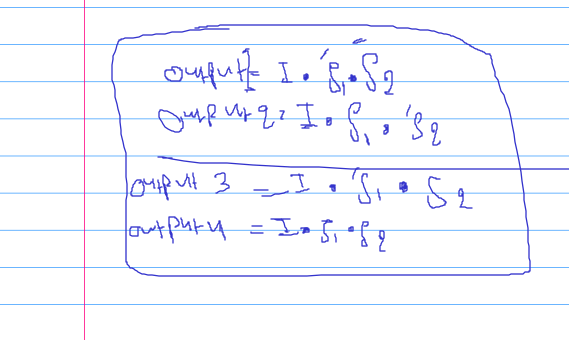 output1= I . 'S1 . S2
output 2= I . S1 . 'S2
output 3 = I . 'S1 . S2
output 4 = I . S1 . S2